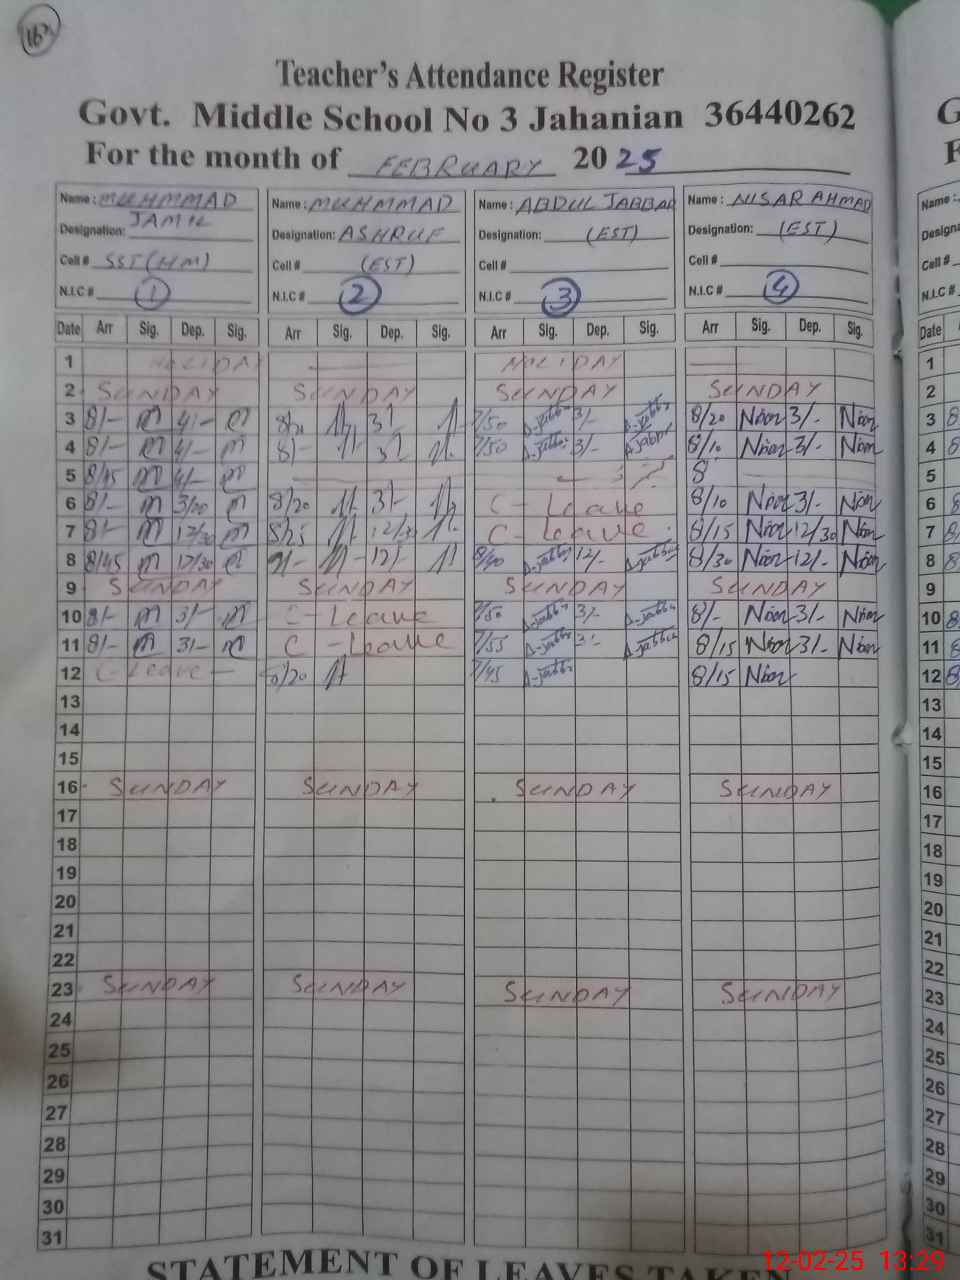 16
Teacher's Attendance Register
Govt. Middle School No 3 Jahanian 36440262
For the month of FEBRUARY 20 25
Name : MUHMMAD Name : MUHMMAD Name : ABDUL JABBAR Name : NISAR AHMAD Name :
Designation: JAMIL Designation: ASHRUF Designation: (EST) Designation: (EST)
Cell # SST(HM) Cell # (EST) Cell # Cell # Cell #
N.I.C # 1 N.I.C # 2 N.I.C # 3 N.I.C # 4 N.I.C #
Date Arr Sig. Dep. Sig. Arr Sig. Dep. Sig. Arr Sig. Dep. Sig. Arr Sig. Dep. Sig. Date
1 HOLIDAY HOLIDAY 1
2 SUNDAY SUNDAY SUNDAY SUNDAY 2
3 8/- m 4/- m 3/- 7/50 A-jabbar 3/- A-jabbar 8/20 Nisar 3/- Nisar 3
4 8/- m 4/- m 8/- 7/50 A-jabbar 3/- A-jabbar 8/10 Nisar 3/- Nisar 4
5 8/45 m 4/- m 8 5
6 8/- m 3/00 m 8/20 3/- C - Leave 8/10 Nisar 3/- Nisar 6
7 8/- m 12/30 m 8/25 12/30 C - Leave 8/15 Nisar 12/30 Nisar 7
8 8/45 m 12/30 m 12/- A-jabbar 12/- A-jabbar 8/30 Nisar 12/- Nisar 8
9 SUNDAY SUNDAY SUNDAY SUNDAY 9
10 8/- m 3/- m C - Leave 7/50 A-jabbar 3/- A-jabbar 8/- Nisar 3/- Nisar 10
11 8/- m 3/- m C - Leave 7/55 A-jabbar 3/- A-jabbar 8/15 Nisar 3/- Nisar 11
12 C - Leave 8/20 7/45 A-jabbar 8/15 Nisar 12
13 13
14 14
15 15
16 SUNDAY SUNDAY SUNDAY SUNDAY 16
17 17
18 18
19 19
20 20
21 21
22 22
23 SUNDAY SUNDAY SUNDAY SUNDAY 23
24 24
25 25
26 26
27 27
28 28
29 29
30 30
31 31
STATEMENT OF LEAVES TAKEN
12-02-25 13:29